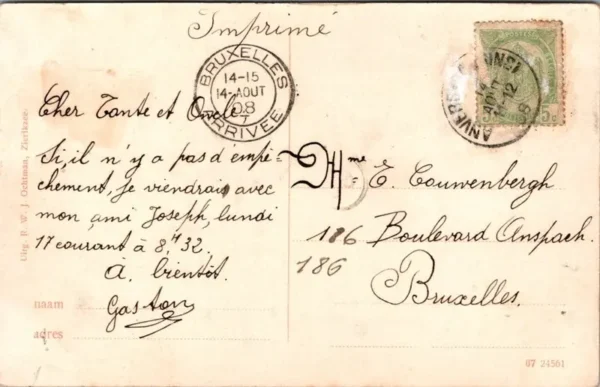 Imprimé
BRUXELLES
14-15
14-AOUT
08
ARRIVÉE
Cher Tante et Oncle
Si, il n'y a pas d'empê-
chément, je viendrais avec
mon ami Joseph, lundi
17 courant à 8 H 32.
À. bientôt.
Gaston
naam
adres
Uitg. F. W. J. Ochtman, Zierikzee.
ANVERS
14 AOUT
08
5c
Mme E. Couwenbergh
186 Boulevard Anspach.
186
Bruxelles.
07 24561